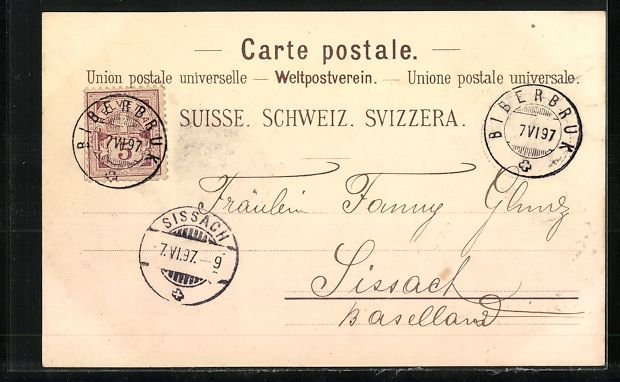 — Carte postale. —
Union postale universelle — Weltpostverein. — Unione postale universale.
SUISSE. SCHWEIZ. SVIZZERA.
BIBERBRUK
7 VI 97
5
BIBERBRUK
7 VI 97
Fräulein Fanny
SISSACH
7. VI. 97. – 9
Sissach
Baselland